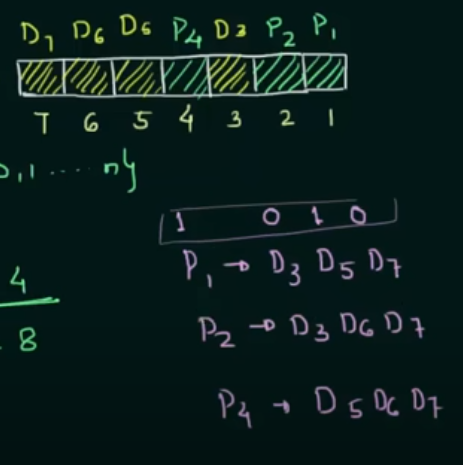 D7 D6 D5 P4 D3 P2 P1
7 6 5 4 3 2 1
0,1 .... n}
1 0 1 0
P1 → D3 D5 D7
4
P2 → D3 D6 D7
8
P4 → D5 D6 D7